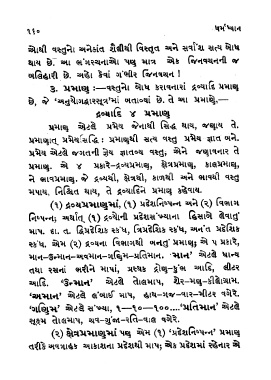 ૧૬૦
ધર્મધ્યાન
ઓથી વસ્તુનો અનેકાંત શૈલીથી વિસ્તૃત અને સર્વાંશે સત્ય બોધ
થાય છે. આ ભંગરચનાઓ પણ માત્ર એક જિનવચનની જ
બલિહારી છે. અહો કેવાં ગંભીર જિનવચન !
૩. પ્રમાણ :—વસ્તુનો બોધ કરાવનારાં દ્રવ્યાદિ પ્રમાણ
છે, જે ‘અનુયોગદ્વારસૂત્ર’માં બતાવ્યાં છે. તે આ પ્રમાણે,—
દ્રવ્યાદિ ૪ પ્રમાણ
પ્રમાણ એટલે પ્રમેય જેનાથી સિદ્ધ થાય, જણાય તે.
પ્રમાણાત્ પ્રમેયસિદ્ધિ: પ્રમાણથી સત્ય વસ્તુ પ્રમેય જ્ઞાત બને.
પ્રમેય એટલે જગતની જ્ઞેય જ્ઞાતવ્ય વસ્તુ; એને જણાવનાર તે
પ્રમાણ. એ ૪ પ્રકારે–દ્રવ્યપ્રમાણ, ક્ષેત્રપ્રમાણ, કાલપ્રમાણ,
ને ભાવપ્રમાણ. જે દ્રવ્યથી, ક્ષેત્રથી, કાળથી અને ભાવથી વસ્તુ
મપાય. નિશ્ચિત થાય, તે દ્રવ્યાદિને પ્રમાણ કહેવાય.
(૧) દ્રવ્યપ્રમાણમાં, (૧) પ્રદેશનિષ્પન્ન અને (૨) વિભાગ
નિષ્પન્ન; અર્થાત્ (૧) દ્રવ્યોની પ્રદેશસંખ્યાના હિસાબે લેવાતું
માપ. દા. ત. દ્વિપ્રદેશિક સ્કંધ, ત્રિપ્રદેશિક સ્કંધ, અનંત પ્રદેશિક
સ્કંધ. એમ (૨) દ્રવ્યના વિભાગથી બનતું પ્રમાણ; એ ૫ પ્રકારે,
માન–ઉન્માન–અવમાન–ગણિમ–પ્રતિમાન. ‘માન’ એટલે ધાન્ય
તથા રસનાં ભરીને માપાં, પ્રસ્થક દ્રોણ–કુંભ આદિ, લીટર
આદિ. ‘ઉન્માન’ એટલે તોલમાપ, શેર–મણ–કીલોગ્રામ.
‘અવમાન’ એટલે લંબાઈ માપ, હાથ–ગજ–વાર–મીટર વગેરે.
‘ગણિમ’ એટલે સંખ્યા, ૧–૧૦–૧૦૦....‘પ્રતિમાન’ એટલે
સૂક્ષ્મ તોલમાપ, યવ–ગુંજા–રતિ–વાલ વગેરે.
(૨) ક્ષેત્રપ્રમાણમાં પણ એમ (૧) ‘પ્રદેશનિષ્પન્ન’ પ્રમાણ
તરીકે અવગાહક આકાશના પ્રદેશોથી માપ; એક પ્રદેશમાં રહેનાર એ